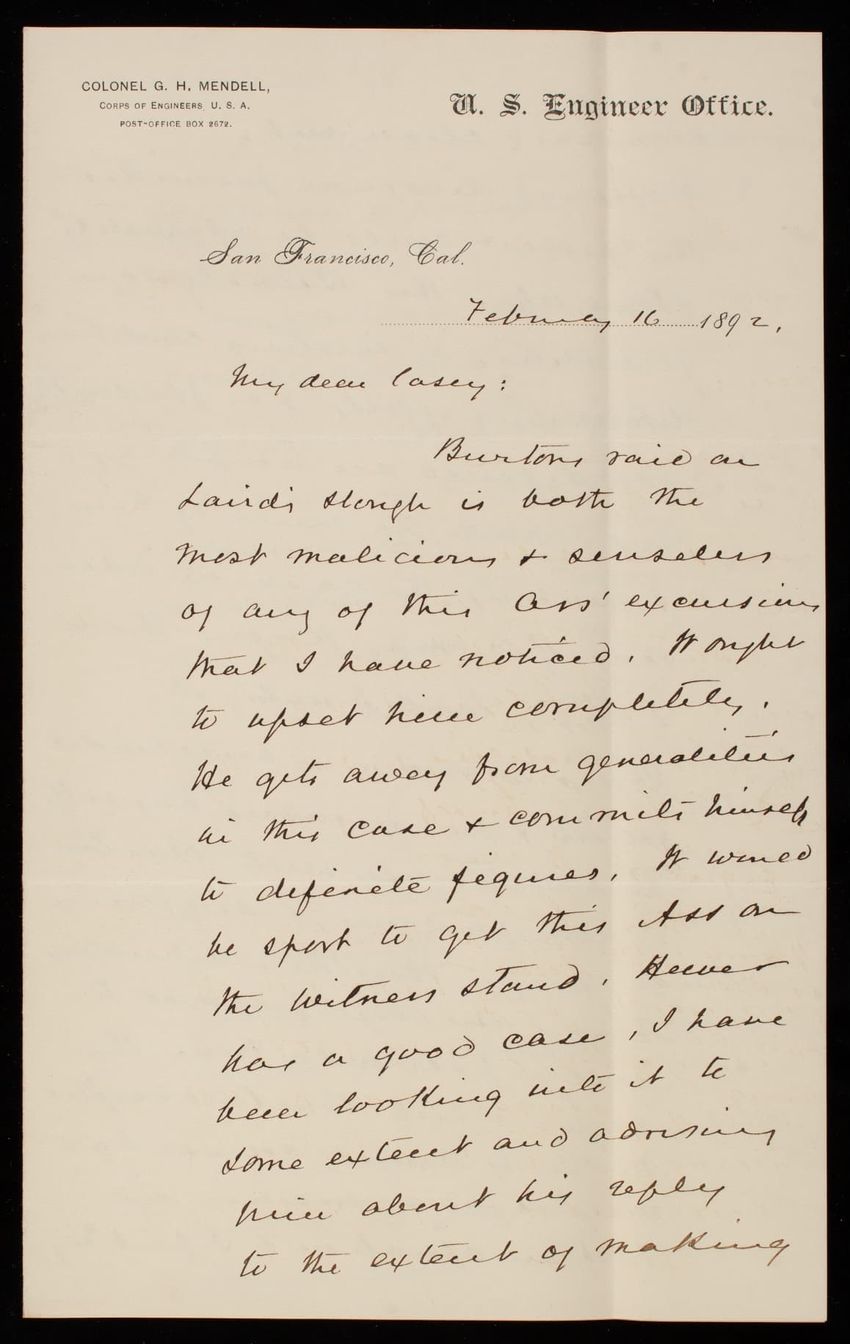 COLONEL G. H. MENDELL,
CORPS OF ENGINEERS, U. S. A.
POST-OFFICE BOX 2672.
U. S. Engineer Office.
San Francisco, Cal.
February 16 1892.
My dear Casey:
Burtons raid on
Laird's slough is both the
most malicious & senseless
of any of this Ass' excursions
that I have noticed. It ought
to upset him completely.
He gets away from generalities
in this case & commits himself
to definite figures. It would
be sport to get this Ass on
the witness stand. Heuer
has a good case, I have
been looking into it to
some extent and advising
him about his reply
to the extent of making